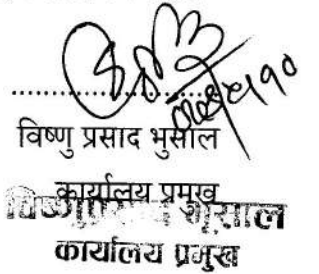 ....................
विष्णु प्रसाद भुसाल
कार्यालय प्रमुख
विष्णुप्रसाद भुसाल
कार्यालय प्रमुख